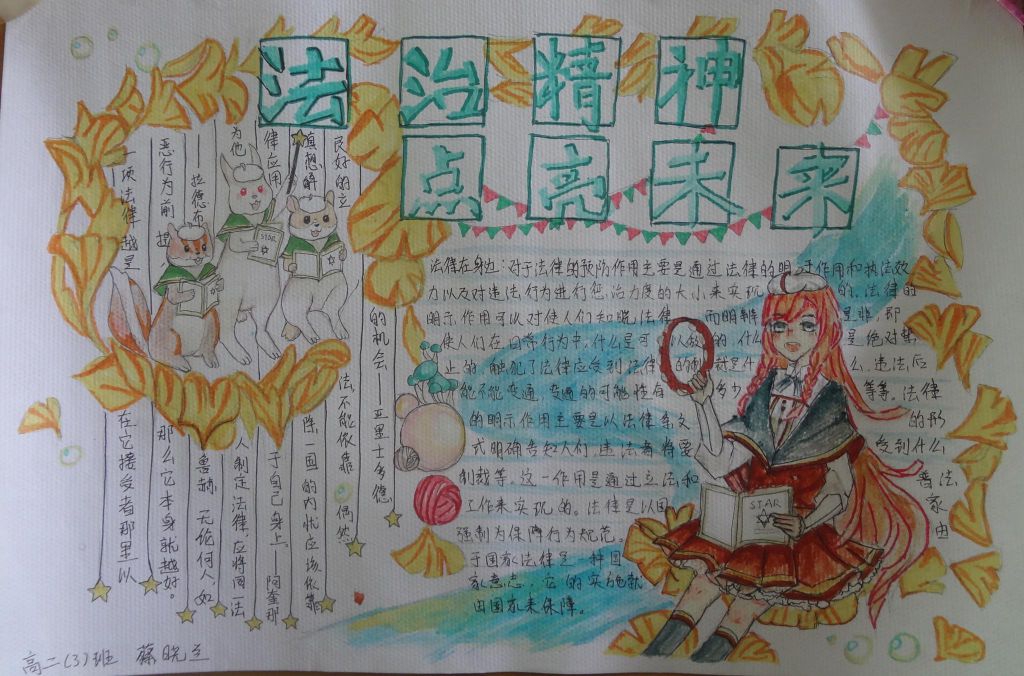 法治精神
点亮未来
良好的立
法不能依靠偶然
的机会——亚里士多德
填想解
除一国的内忧应该依靠
律应用
于自己身上——阿奎那
为他
人制定法律,应将同一法
——拉德布
鲁赫 无论何人,如
恶行为前提
那么它本身就越好。
一项法律越是
在它接受者那里以
STAR
法律在身边:对于法律的预防作用主要是通过法律的明示作用和执法效
力以及对违法行为进行惩治力度的大小来实现的。法律的
明示作用可以对使人们知晓法律而明辨是非,即
使人们在日常行为中,什么是可以做的,什么是绝对禁
止的,触犯了法律应受到法律的制就是什么,违法后
能不能变通,变通的可能性有多少等等。法律
的明示作用主要是以法律条文的形
式明确告知人们,违法者将要受到什么
制裁等。这一作用是通过立法和普法
工作来实现的。法律是以国家
强制为保障行为规范。由
于国家法律是一种国
家意志,它的实施就
由国家来保障。
STAR
高二(3)班 蔡晓兰